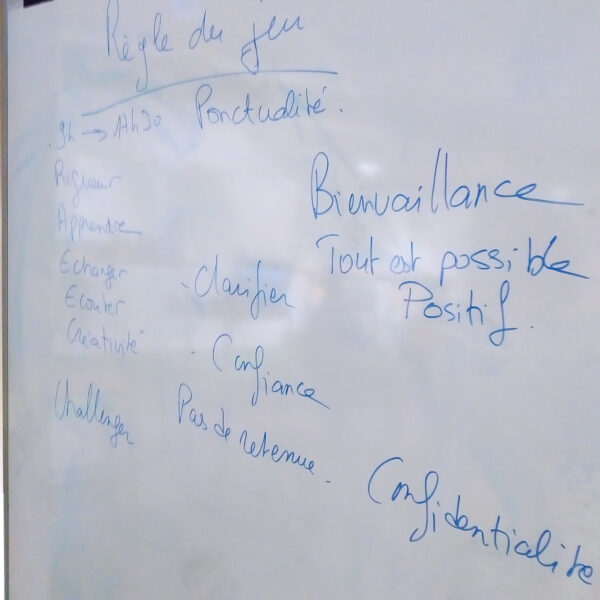 Règle du jeu
9h → 17h30 Ponctualité.
Rigueur
Apprendre
Echanger
Ecouter
Créativité
Challenger
- Clarifier
- Confiance
Pas de retenue.
Bienvaillance
Tout est possible
Positif.
Confidentialité